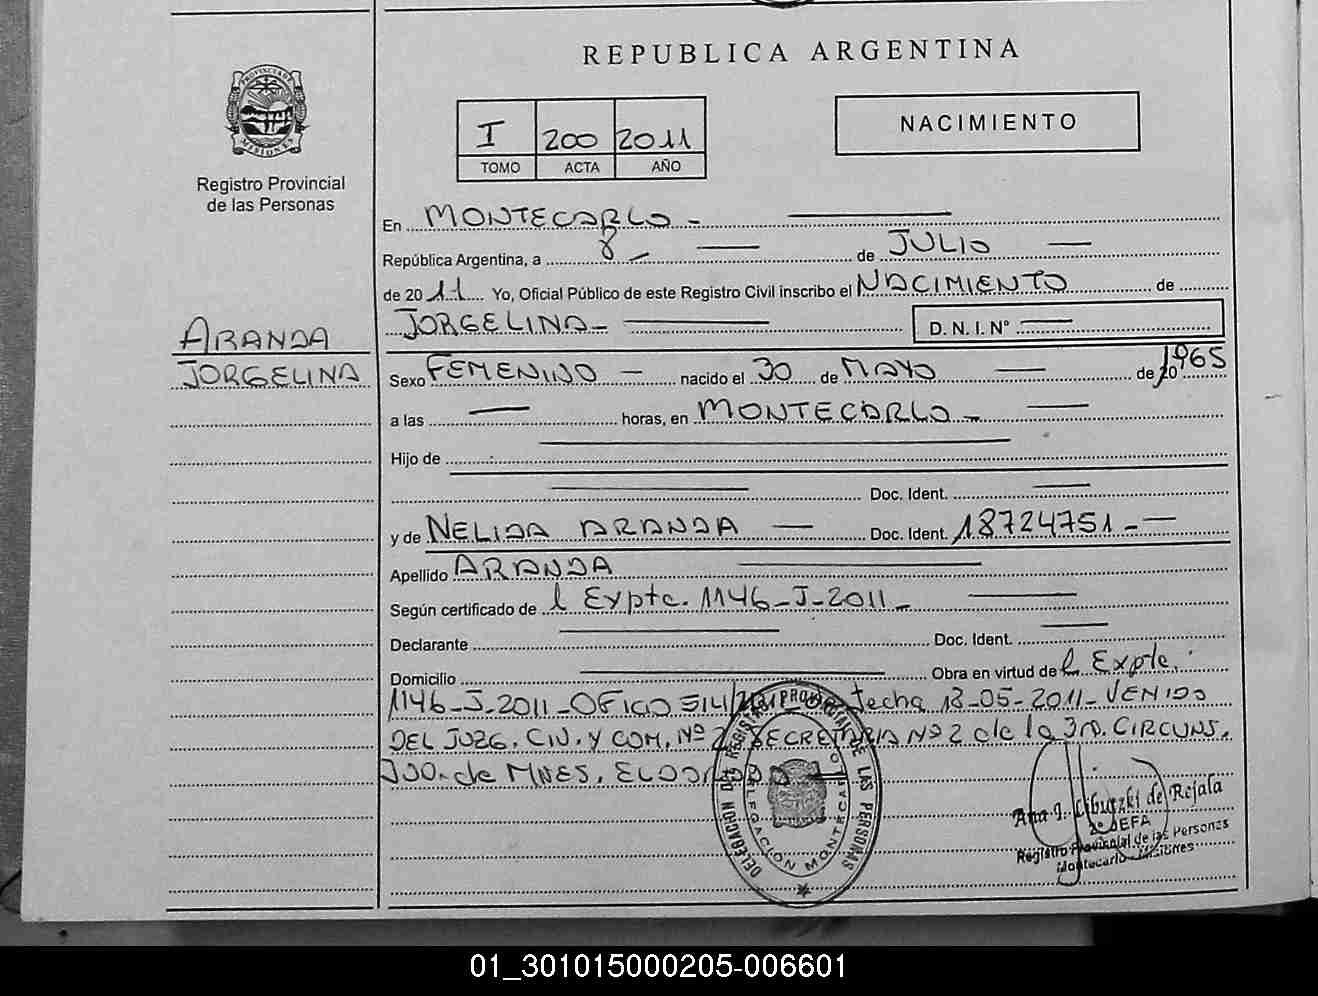 REPUBLICA ARGENTINA
PROVINCIA DE MISIONES
Registro Provincial
de las Personas
I 200 2011
TOMO ACTA AÑO
NACIMIENTO
En MONTECARLO -
República Argentina, a 8 - de JULIO
de 2011 Yo, Oficial Público de este Registro Civil inscribo el NACIMIENTO de
ARANDA
JORGELINA
JORGELINA - D. N. I. N°
Sexo FEMENINO - nacido el 30 de MAYO de 20 1965
a las horas, en MONTECARLO -
Hijo de
Doc. Ident.
y de NELIDA ARANDA Doc. Ident. 18724751 -
Apellido ARANDA
Según certificado de l Expte. 1146-J-2011-
Declarante Doc. Ident.
Domicilio Obra en virtud de l Expte.
1146-J-2011-OFICIO fecha 18-05-2011-VENIDO
DEL JUZG. CIV. Y COM. Nº 2 SECRETARIA Nº 2 de la 3RA. CIRCUNS.
JUD. de MNES. ELDORADO
DELEGACION DEL REGISTRO PROVINCIAL DE LAS PERSONAS
DELEGACION MONTECARLO
Ana I. Libutzki de Rejala
JEFA
Registro Provincial de las Personas
Montecarlo - Misiones
01_301015000205-006601